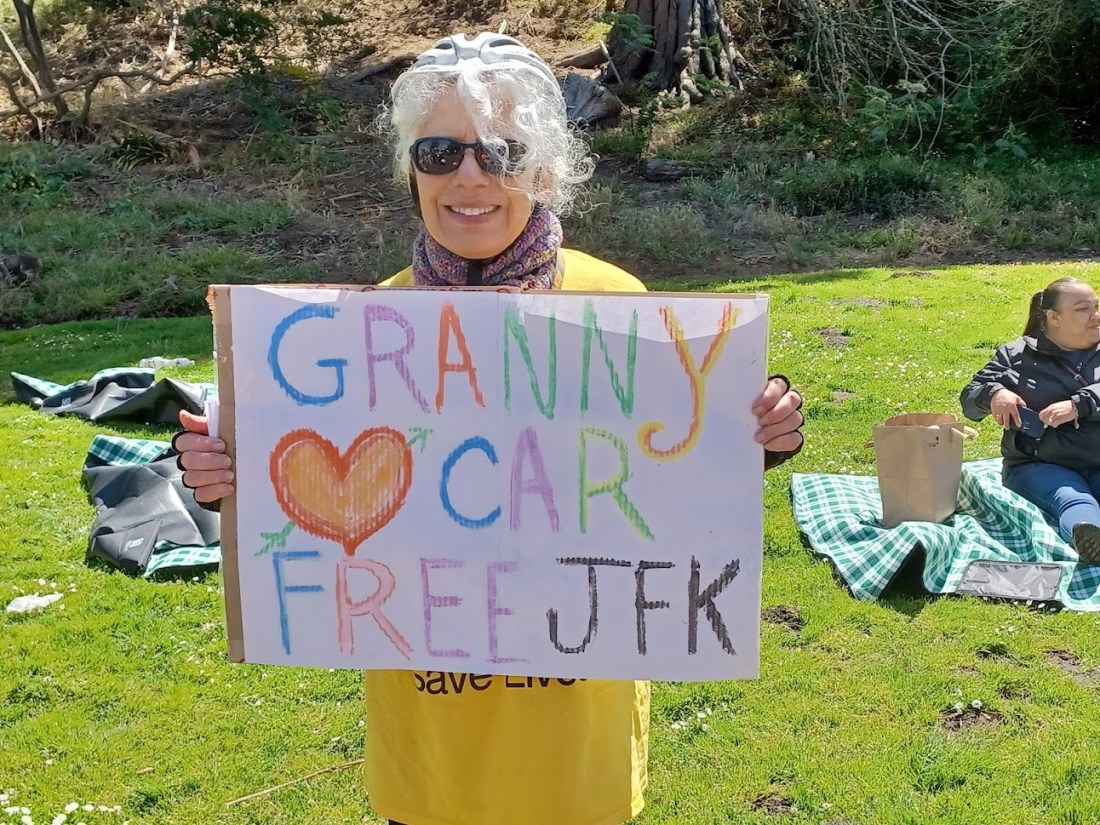 GRANNY
CAR
FREE JFK
Save